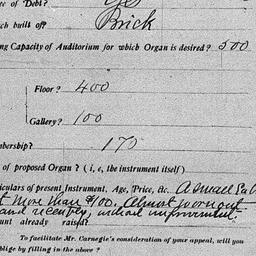 of Debt?
ch built of? Brick
ng Capacity of Auditorium for which Organ is desired? 500
Floor? 400
Gallery? 100
mbership? 175
of proposed Organ? ( i, e, the instrument itself )
iculars of present Instrument, Age, Price, &c. A small
t more than $100. Almost wornout
and recently, without improvement.
unt already raised?
To facilitate Mr. Carnegie's consideration of your appeal, will you
oblige by filling in the above?